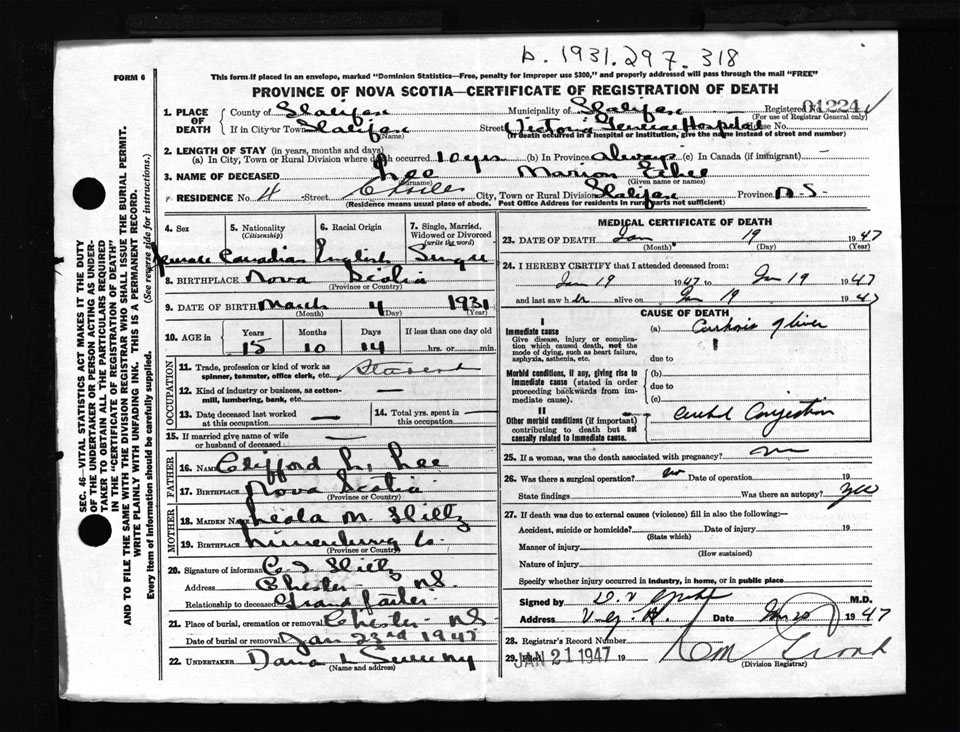 b. 1931.297.318
FORM 6
This form if placed in an envelope, marked "Dominion Statistics—Free, penalty for improper use $300," and properly addressed will pass through the mail "FREE"
PROVINCE OF NOVA SCOTIA—CERTIFICATE OF REGISTRATION OF DEATH
1. PLACE OF DEATH County of Halifax Municipality of Halifax Registered No. 01224
(For use of Registrar General only)
If in City or Town Halifax (Name) Street Victoria General Hospital House No.
(If death occurred in a hospital or institution, give the name instead of street and number)
2. LENGTH OF STAY (in years, months and days)
(a) In City, Town or Rural Division where death occurred 10 yrs (b) In Province always (c) In Canada (if immigrant)
3. NAME OF DECEASED Lee Marion Ethel
(Surname) (Given name or names)
RESIDENCE No. 4 Street City, Town or Rural Division Halifax Province N.S.
(Residence means usual place of abode. Post Office Address for residents in rural parts not sufficient)
4. Sex 5. Nationality (Citizenship) 6. Racial Origin 7. Single, Married, Widowed or Divorced (write the word)
Female Canadian English Single
8. BIRTHPLACE Nova Scotia
(Province or Country)
9. DATE OF BIRTH March 4 1931
(Month) (Day) (Year)
10. AGE in Years Months Days If less than one day old
15 10 14 hrs. or min.
OCCUPATION
11. Trade, profession or kind of work as spinner, teamster, office clerk, etc. Student
12. Kind of industry or business, as cotton-mill, lumbering, bank, etc. —
13. Date deceased last worked at this occupation — 14. Total yrs. spent in this occupation —
15. If married give name of wife or husband of deceased —
FATHER
16. Name Clifford L. Lee
17. Birthplace Nova Scotia
(Province or Country)
MOTHER
18. Maiden Name Leola M. Hiltz
19. Birthplace Lunenburg Co.
(Province or Country)
20. Signature of informant Hiltz
Address Chester N.S.
Relationship to deceased Grandfather
21. Place of burial, cremation or removal Chester N.S.
Date of burial or removal Jan 23rd 1947
22. UNDERTAKER Dana L Sweeny
(Name and address)
MEDICAL CERTIFICATE OF DEATH
23. DATE OF DEATH Jan 19 1947
(Month) (Day) (Year)
24. I HEREBY CERTIFY that I attended deceased from:
Jan 19 1947 to Jan 19 1947
and last saw her alive on Jan 19 1947
CAUSE OF DEATH
I
Immediate cause
Give disease, injury or complication which caused death, not the mode of dying, such as heart failure, asphyxia, asthenia, etc.
(a) Cirrhosis of liver
due to
Morbid conditions, if any, giving rise to immediate cause (stated in order proceeding backwards from immediate cause).
(b)
due to
(c)
II
Other morbid conditions (if important) contributing to death but not causally related to immediate cause.
Congestion
25. If a woman, was the death associated with pregnancy? no
26. Was there a surgical operation? no Date of operation 19
State findings Was there an autopsy? yes
27. If death was due to external causes (violence) fill in also the following:—
Accident, suicide or homicide? Date of injury 19
(State which)
Manner of injury
(How sustained)
Nature of injury
Specify whether injury occurred in industry, in home, or in public place
Signed by M.D.
Address V.G.H. Date Jan 20 1947
28. Registrar's Record Number
29. Filed JAN 21 1947 19
(Division Registrar)
SEC. 46—VITAL STATISTICS ACT MAKES IT THE DUTY
OF THE UNDERTAKER OR PERSON ACTING AS UNDER-
TAKER TO OBTAIN ALL THE PARTICULARS REQUIRED
IN THE "CERTIFICATE OF REGISTRATION OF DEATH"
AND TO FILE THE SAME WITH THE DIVISION REGISTRAR WHO SHALL ISSUE THE BURIAL PERMIT.
WRITE PLAINLY WITH UNFADING INK. THIS IS A PERMANENT RECORD.
Every item of Information should be carefully supplied. (See reverse side for instructions.)